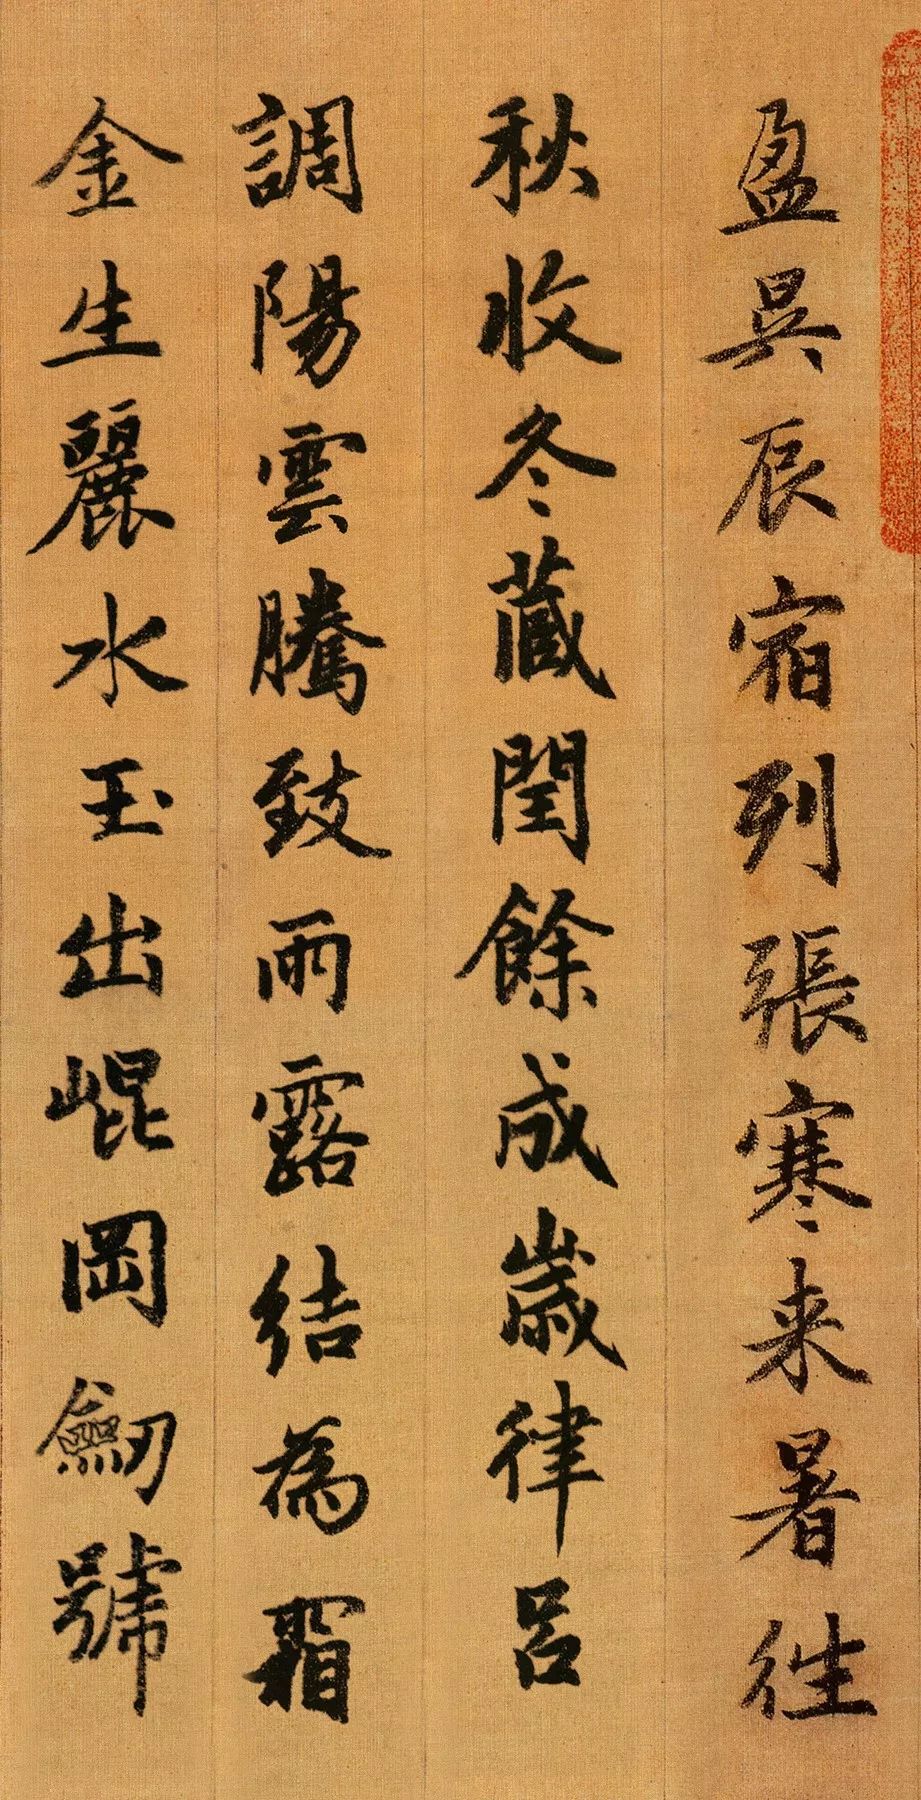 盈昃辰宿列張寒来暑徃
秋收冬藏閏餘成歲律呂
調陽雲騰致雨露結為霜
金生麗水玉出崐岡劒號